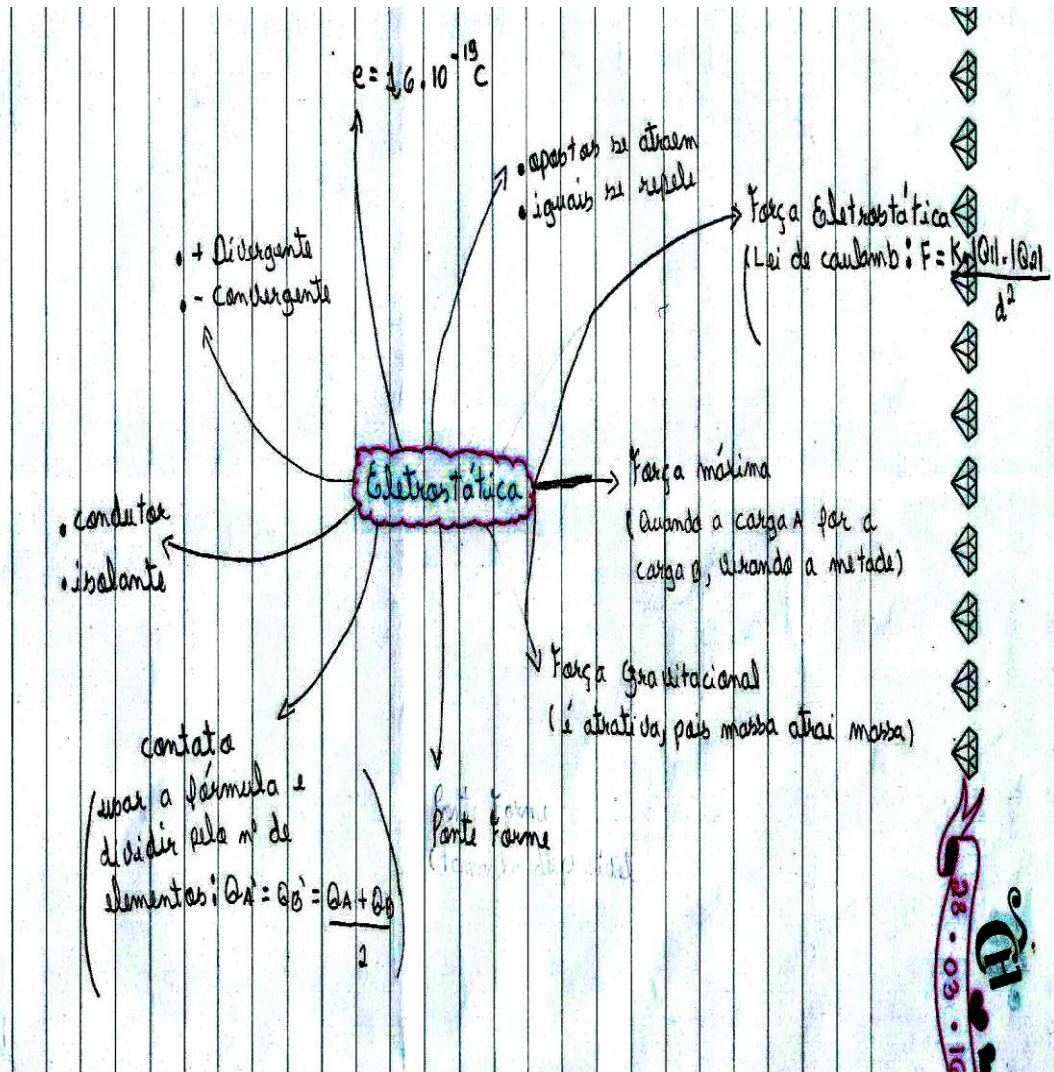 e = 1,6 . 10⁻¹⁹ C
• opostos se atraem
• iguais se repele
Força Eletrostática
(Lei de coulomb: F = K . |Q1| . |Q2|
d²
• + Divergente
• - convergente
Eletrostática
Força máxima
(Quando a carga A for a
carga B, virando a metade)
• condutor
• isolante
Força Gravitacional
(é atrativa, pois massa atrai massa)
contato
(usar a fórmula e
dividir pelo nº de
elementos: QA' = QB' = QA + QB
2
Forme
28 . 03 .